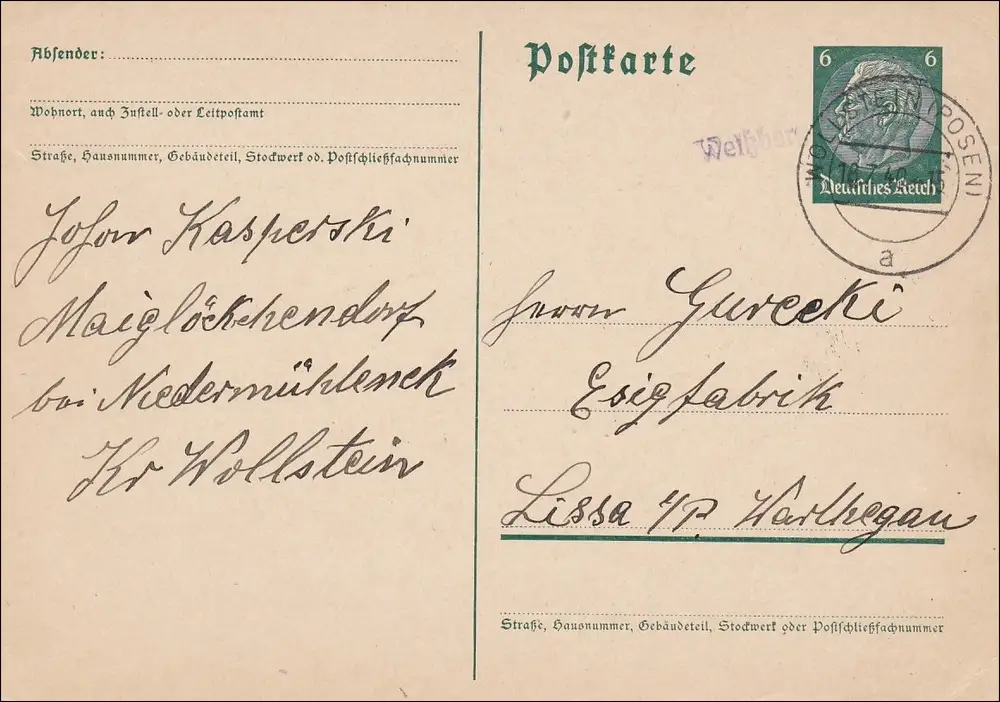 Absender:
Wohnort, auch Zustell- oder Leitpostamt
Straße, Hausnummer, Gebäudeteil, Stockwerk od. Postschließfachnummer
Johan Kasperski
Maiglöckchendorf
bei Niedermühleneck
Kr Wollstein
Postkarte
6 6
Deutsches Reich
WOLLSTEIN (POSEN)
a
Herrn Gurecki
Esigfabrik
Lissa i/P. Warthegau
Straße, Hausnummer, Gebäudeteil, Stockwerk oder Postschließfachnummer